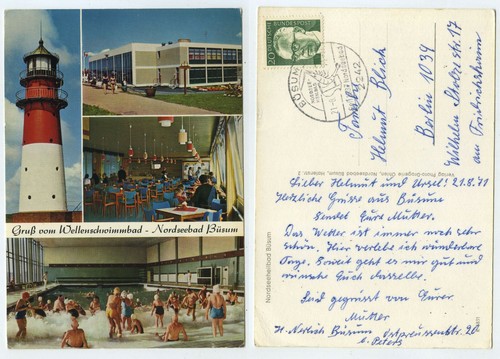 Gruß vom Wellenschwimmbad - Nordseebad Büsum
20 DEUTSCHE BUNDESPOST
BÜSUM
2242
Familie
Helmut Blich
Berlin 1039
Wilhelm Stolze str. 17
am Friedrichshain
Lieber Helmut und Ursel! 21.8.71
Herzliche Grüsse aus Büsum
sendet Eure Mutter.
Das Wetter ist immer noch sehr
schön. Hier verlebe ich wunderbare
Tage. Soweit geht es mir gut und
wünsche Euch dasselbe.
Seid gegrüsst von Eurer
Mutter
H. Nerlich Büsum Ostpreussenstr. 20
b. Peters
Nordseeheilbad Büsum